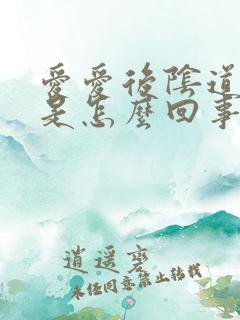 愛愛後陰道
是怎麼回事
逍遥客
未经同意禁止转载